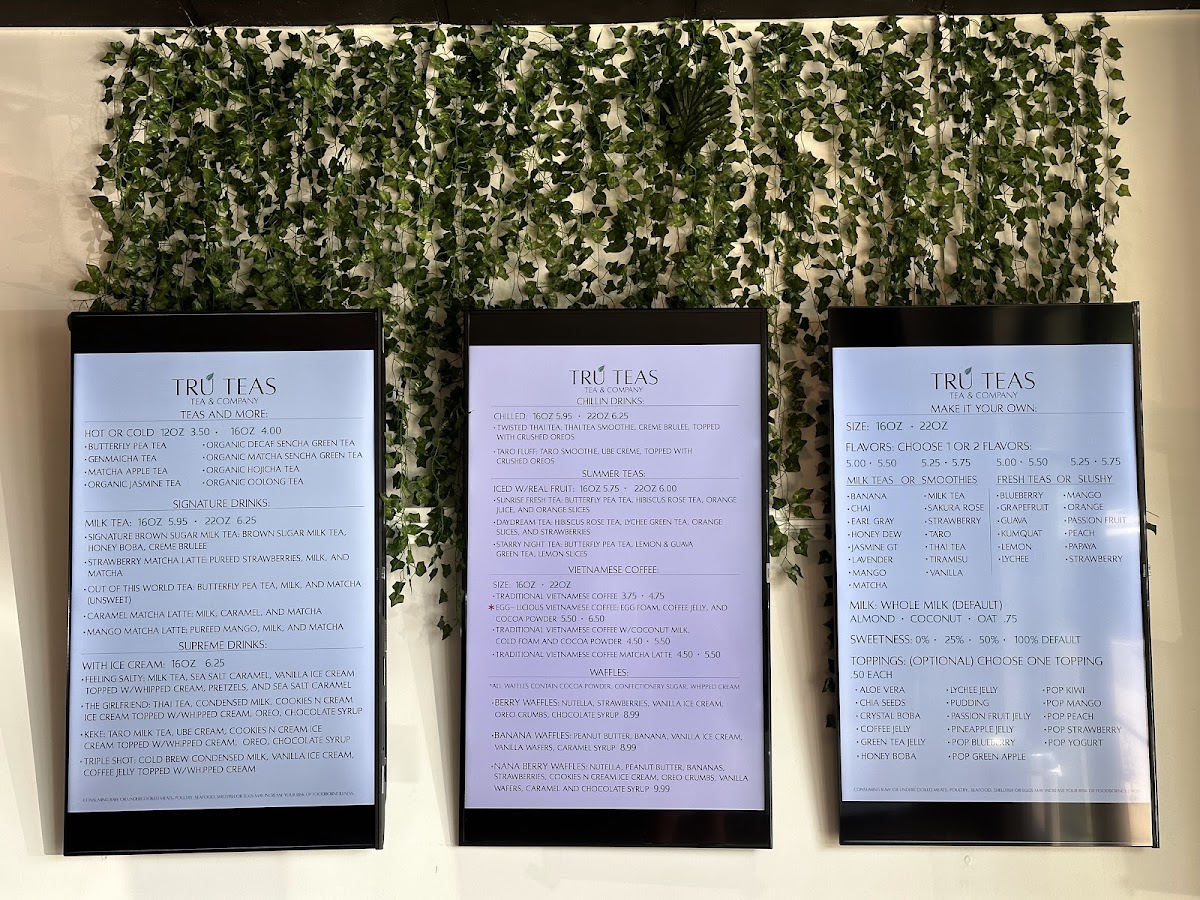 TRÚ TEAS
TEA & COMPANY
TEAS AND MORE:
HOT OR COLD 12OZ 3.50 · 16OZ 4.00
•BUTTERFLY PEA TEA
•GENMAICHA TEA
•MATCHA APPLE TEA
•ORGANIC JASMINE TEA
•ORGANIC DECAF SENCHA GREEN TEA
•ORGANIC MATCHA SENCHA GREEN TEA
•ORGANIC HOJICHA TEA
•ORGANIC OOLONG TEA
SIGNATURE DRINKS:
MILK TEA: 16OZ 5.95 · 22OZ 6.25
•SIGNATURE BROWN SUGAR MILK TEA: BROWN SUGAR MILK TEA,
HONEY BOBA, CREME BRULEE
•STRAWBERRY MATCHA LATTE: PUREED STRAWBERRIES, MILK, AND
MATCHA
•OUT OF THIS WORLD TEA: BUTTERFLY PEA TEA, MILK, AND MATCHA
(UNSWEET)
•CARAMEL MATCHA LATTE: MILK, CARAMEL, AND MATCHA
•MANGO MATCHA LATTE: PUREED MANGO, MILK, AND MATCHA
SUPREME DRINKS:
WITH ICE CREAM: 16OZ 6.25
•FEELING SALTY: MILK TEA, SEA SALT CARAMEL, VANILLA ICE CREAM
TOPPED W/WHIPPED CREAM, PRETZELS, AND SEA SALT CARAMEL
•THE GIRLFRIEND: THAI TEA, CONDENSED MILK, COOKIES N CREAM
ICE CREAM TOPPED W/WHIPPED CREAM, OREO, CHOCOLATE SYRUP
•KEKE: TARO MILK TEA, UBE CREAM, COOKIES N CREAM ICE
CREAM TOPPED W/WHIPPED CREAM, OREO, CHOCOLATE SYRUP
•TRIPLE SHOT: COLD BREW CONDENSED MILK, VANILLA ICE CREAM,
COFFEE JELLY TOPPED W/WHIPPED CREAM
CONSUMING RAW OR UNDERCOOKED MEATS, POULTRY, SEAFOOD, SHELLFISH OR EGGS MAY INCREASE YOUR RISK OF FOODBORNE ILLNESS.
TRÚ TEAS
TEA & COMPANY
CHILLIN DRINKS:
CHILLED: 16OZ 5.95 · 22OZ 6.25
•TWISTED THAI TEA: THAI TEA SMOOTHIE, CREME BRULEE, TOPPED
WITH CRUSHED OREOS
•TARO FLUFF: TARO SMOOTHIE, UBE CRÉME, TOPPED WITH
CRUSHED OREOS
SUMMER TEAS:
ICED W/REAL FRUIT: 16OZ 5.75 · 22OZ 6.00
•SUNRISE FRESH TEA: BUTTERFLY PEA TEA, HIBISCUS ROSE TEA, ORANGE
JUICE, AND ORANGE SLICES
•DAYDREAM TEA: HIBISCUS ROSE TEA, LYCHEE GREEN TEA, ORANGE
SLICES, AND STRAWBERRIES
•STARRY NIGHT TEA: BUTTERFLY PEA TEA, LEMON & GUAVA
GREEN TEA, LEMON SLICES
VIETNAMESE COFFEE:
SIZE: 16OZ · 22OZ
•TRADITIONAL VIETNAMESE COFFEE 3.75 · 4.75
*EGG-LICIOUS VIETNAMESE COFFEE: EGG FOAM, COFFEE JELLY, AND
COCOA POWDER 5.50 · 6.50
•TRADITIONAL VIETNAMESE COFFEE W/COCONUT MILK,
COLD FOAM AND COCOA POWDER 4.50 · 5.50
•TRADITIONAL VIETNAMESE COFFEE MATCHA LATTE 4.50 · 5.50
WAFFLES:
*ALL WAFFLES CONTAIN COCOA POWDER, CONFECTIONERY SUGAR, WHIPPED CREAM
•BERRY WAFFLES: NUTELLA, STRAWBERRIES, VANILLA ICE CREAM,
OREO CRUMBS, CHOCOLATE SYRUP 8.99
•BANANA WAFFLES: PEANUT BUTTER, BANANA, VANILLA ICE CREAM,
VANILLA WAFERS, CARAMEL SYRUP 8.99
•NANA BERRY WAFFLES: NUTELLA, PEANUT BUTTER, BANANAS,
STRAWBERRIES, COOKIES N CREAM ICE CREAM, OREO CRUMBS, VANILLA
WAFERS, CARAMEL AND CHOCOLATE SYRUP 9.99
TRÚ TEAS
TEA & COMPANY
MAKE IT YOUR OWN:
SIZE: 16OZ · 22OZ
FLAVORS: CHOOSE 1 OR 2 FLAVORS:
5.00 · 5.50 5.25 · 5.75 5.00 · 5.50 5.25 · 5.75
MILK TEAS OR SMOOTHIES FRESH TEAS OR SLUSHY
•BANANA
•CHAI
•EARL GRAY
•HONEY DEW
•JASMINE GT
•LAVENDER
•MANGO
•MATCHA
•MILK TEA
•SAKURA ROSE
•STRAWBERRY
•TARO
•THAI TEA
•TIRAMISU
•VANILLA
•BLUEBERRY
•GRAPEFRUIT
•GUAVA
•KUMQUAT
•LEMON
•LYCHEE
•MANGO
•ORANGE
•PASSION FRUIT
•PEACH
•PAPAYA
•STRAWBERRY
MILK: WHOLE MILK (DEFAULT)
ALMOND · COCONUT · OAT .75
SWEETNESS: 0% · 25% · 50% · 100% DEFAULT
TOPPINGS: (OPTIONAL) CHOOSE ONE TOPPING
.50 EACH
•ALOE VERA
•CHIA SEEDS
•CRYSTAL BOBA
•COFFEE JELLY
•GREEN TEA JELLY
•HONEY BOBA
•LYCHEE JELLY
•PUDDING
•PASSION FRUIT JELLY
•PINEAPPLE JELLY
•POP BLUEBERRY
•POP GREEN APPLE
•POP KIWI
•POP MANGO
•POP PEACH
•POP STRAWBERRY
•POP YOGURT
CONSUMING RAW OR UNDERCOOKED MEATS, POULTRY, SEAFOOD, SHELLFISH OR EGGS MAY INCREASE YOUR RISK OF FOODBORNE ILLNESS